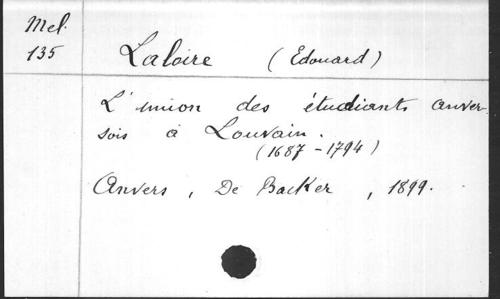 Mel.
135
Laloire (Edouard)
L'union des étudiants anver-
sois à Louvain.
(1687-1794)
Anvers, De Backer, 1899.